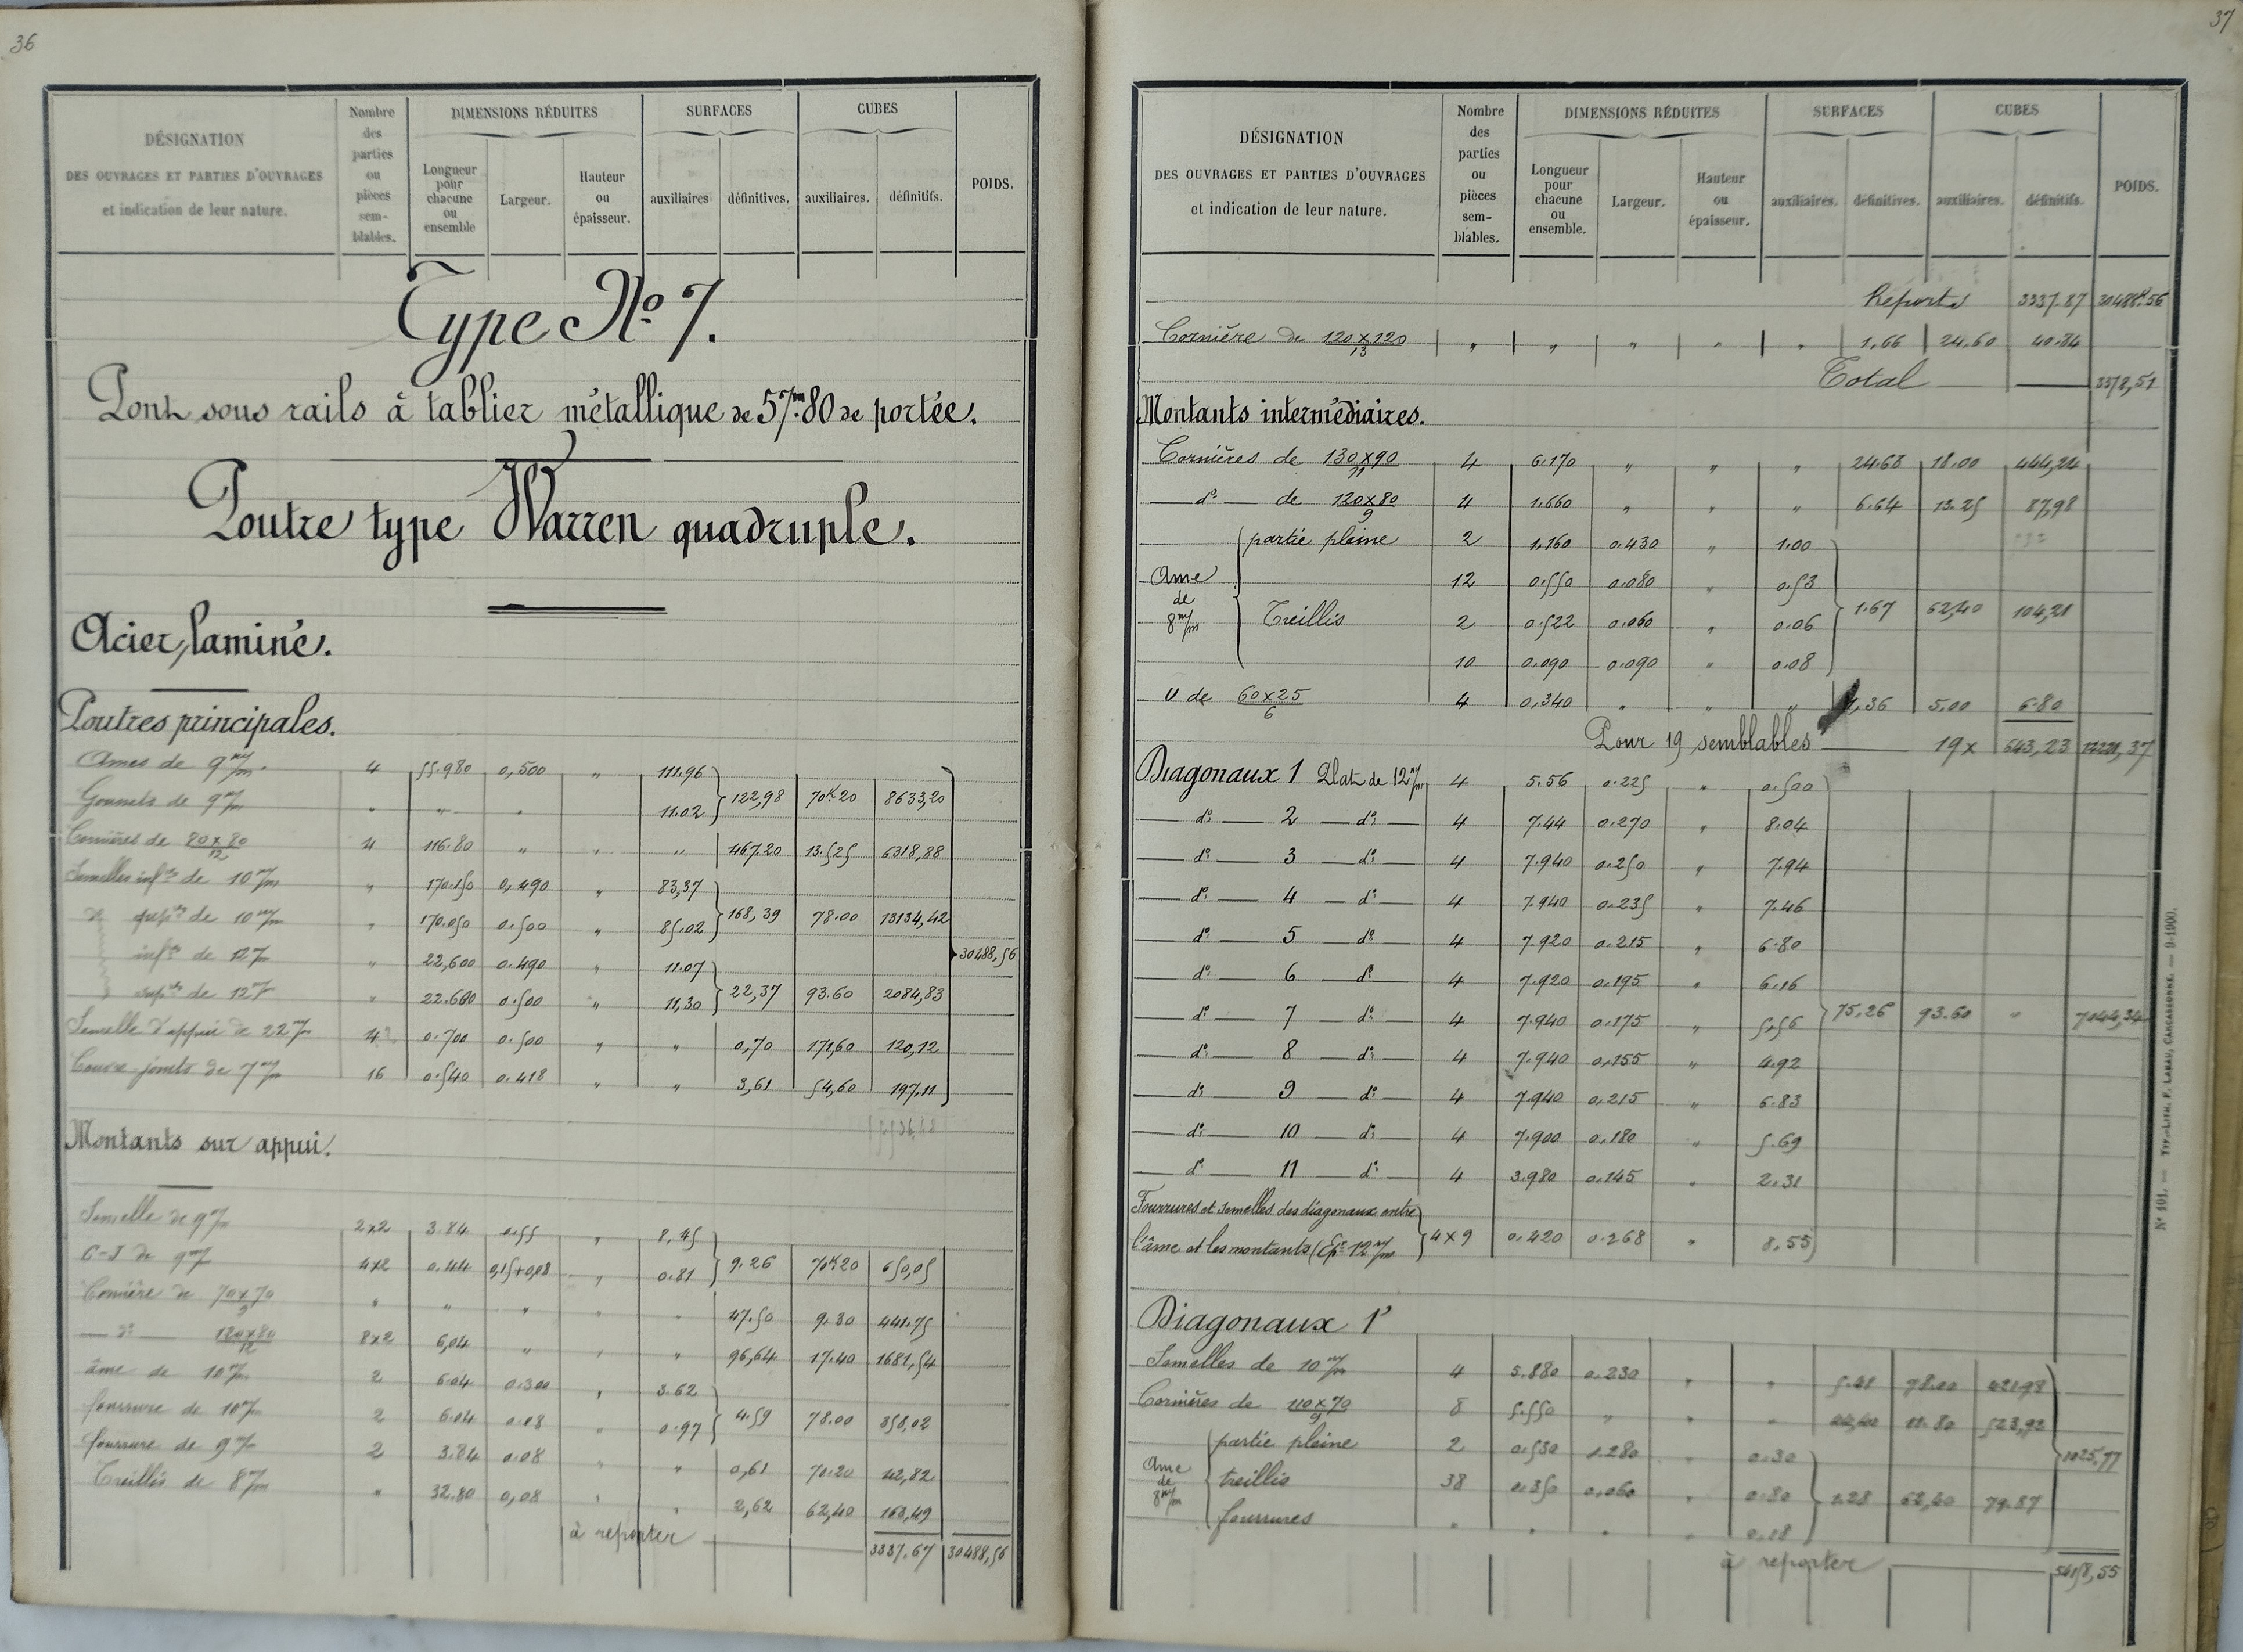 36
DÉSIGNATION
DES OUVRAGES ET PARTIES D'OUVRAGES
et indication de leur nature.
Nombre
des
parties
ou
pièces
sem-
blables.
DIMENSIONS RÉDUITES
Longueur
pour
chacune
ou
ensemble
Largeur.
Hauteur
ou
épaisseur.
SURFACES
auxiliaires
définitives.
CUBES
auxiliaires.
définitifs.
POIDS.
Type No. 7.
Pont sous rails à tablier métallique de 57m.80 de portée.
Poutre type Warren quadruple.
Acier laminé.
Poutres principales.
Ames de 9 m/m. 4 55.980 0,500 " 111.96
Goussets de 9 m/m " " " 11.02 122,98 70K.20 8633,20
Cornières de 80x80/12 4 116.80 " " " 467.20 13.525 6318,88
Semelles infres de 10 m/m " 170.150 0,490 " 83,37
d° supres de 10 m/m " 170.050 0.500 " 85.02 168,39 78.00 13134,42
infres de 12 m/m " 22,600 0.490 " 11.07 30488,56
supres de 12 m/m " 22.600 0.500 " 11,30 22,37 93.60 2084,83
Semelle d'appui de 22 m/m 4 0.700 0.500 " " 0,70 171,60 120,12
Couvre-joints de 7 m/m 16 0.540 0.418 " " 3,61 54,60 197.11
Montants sur appui.
Semelle de 9 m/m 2x2 3.84 0.55 " 8,45
C-J de 9 m/m 4x2 0.44 0,15+0,08 " 0.81 9.26 70K.20 650,05
Cornière de 70x70/9 " " " " " 47.50 9.30 441.75
d° 120x80/12 8x2 6,04 " " " 96,64 17.40 1681,54
âme de 10 m/m 2 6.04 0.300 " 3.62
fourrure de 10 m/m 2 6.04 0.08 " 0.97 4.59 78.00 358,02
fourrure de 9 m/m 2 3.84 0.08 " " 0,61 70.20 42,82
Treillis de 8 m/m " 32.80 0,08 " " 2,62 62,40 163,49
à reporter 3337.67 30488,56
37
DÉSIGNATION
DES OUVRAGES ET PARTIES D'OUVRAGES
et indication de leur nature.
Nombre
des
parties
ou
pièces
sem-
blables.
DIMENSIONS RÉDUITES
Longueur
pour
chacune
ou
ensemble.
Largeur.
Hauteur
ou
épaisseur.
SURFACES
auxiliaires.
définitives.
CUBES
auxiliaires.
définitifs.
POIDS.
Reports 3337.87 30488K.56
Cornière de 120x120/13 " " " " " 1,66 24.60 40.84
Total 3378,51
Montants intermédiaires.
Cornières de 130x90/11 4 6.170 " " " 24.68 18.00 444,24
d° de 120x80/9 4 1.660 " " " 6.64 13.25 87,98
partie pleine 2 1,160 0.430 " 1.00
Ame de 8 m/m 12 0.550 0.080 " 0.53
Treillis 2 0.522 0.060 " 0.06 1.67 62,40 104,21
10 0.090 0.090 " 0.08
U de 60x25/6 4 0,340 " " " 1,36 5.00 6.80
Pour 19 semblables 19x 643,23 12221,37
Diagonaux 1 Plat de 12 m/m 4 5.56 0.225 " 0.500
d° 2 d° 4 7.44 0.270 " 8.04
d° 3 d° 4 7.940 0.250 " 7.94
d° 4 d° 4 7.940 0.235 " 7.46
d° 5 d° 4 7.920 0.215 " 6.80
d° 6 d° 4 7.920 0.195 " 6.16
d° 7 d° 4 7.940 0.175 " 5.56 75,26 93.60 " 7044,34
d° 8 d° 4 7.940 0,155 " 4.92
d° 9 d° 4 7.940 0.215 " 6.83
d° 10 d° 4 7.900 0.180 " 5.69
d° 11 d° 4 3.980 0.145 " 2.31
Fourrures et semelles des diagonaux entre
l'âme et les montants (Ép.r 12 m/m 4x9 0.420 0.268 " 8,55
Diagonaux 1'
Semelles de 10 m/m 4 5.880 0.230 " " 5.41 78.00 421.98
Cornières de 110x70/9 8 5.550 " " " 11.80 523,92
partie pleine 2 0.530 0.30 1025,77
Ame de 8 m/m treillis 38 0.350 0.060 " 0.80 1.28 62,40 79.87
fourrures " " " " 0.18
à reporter
No 101. — TYP.-LITH. F. LABAU, CARCASSONNE. — 9-1900.